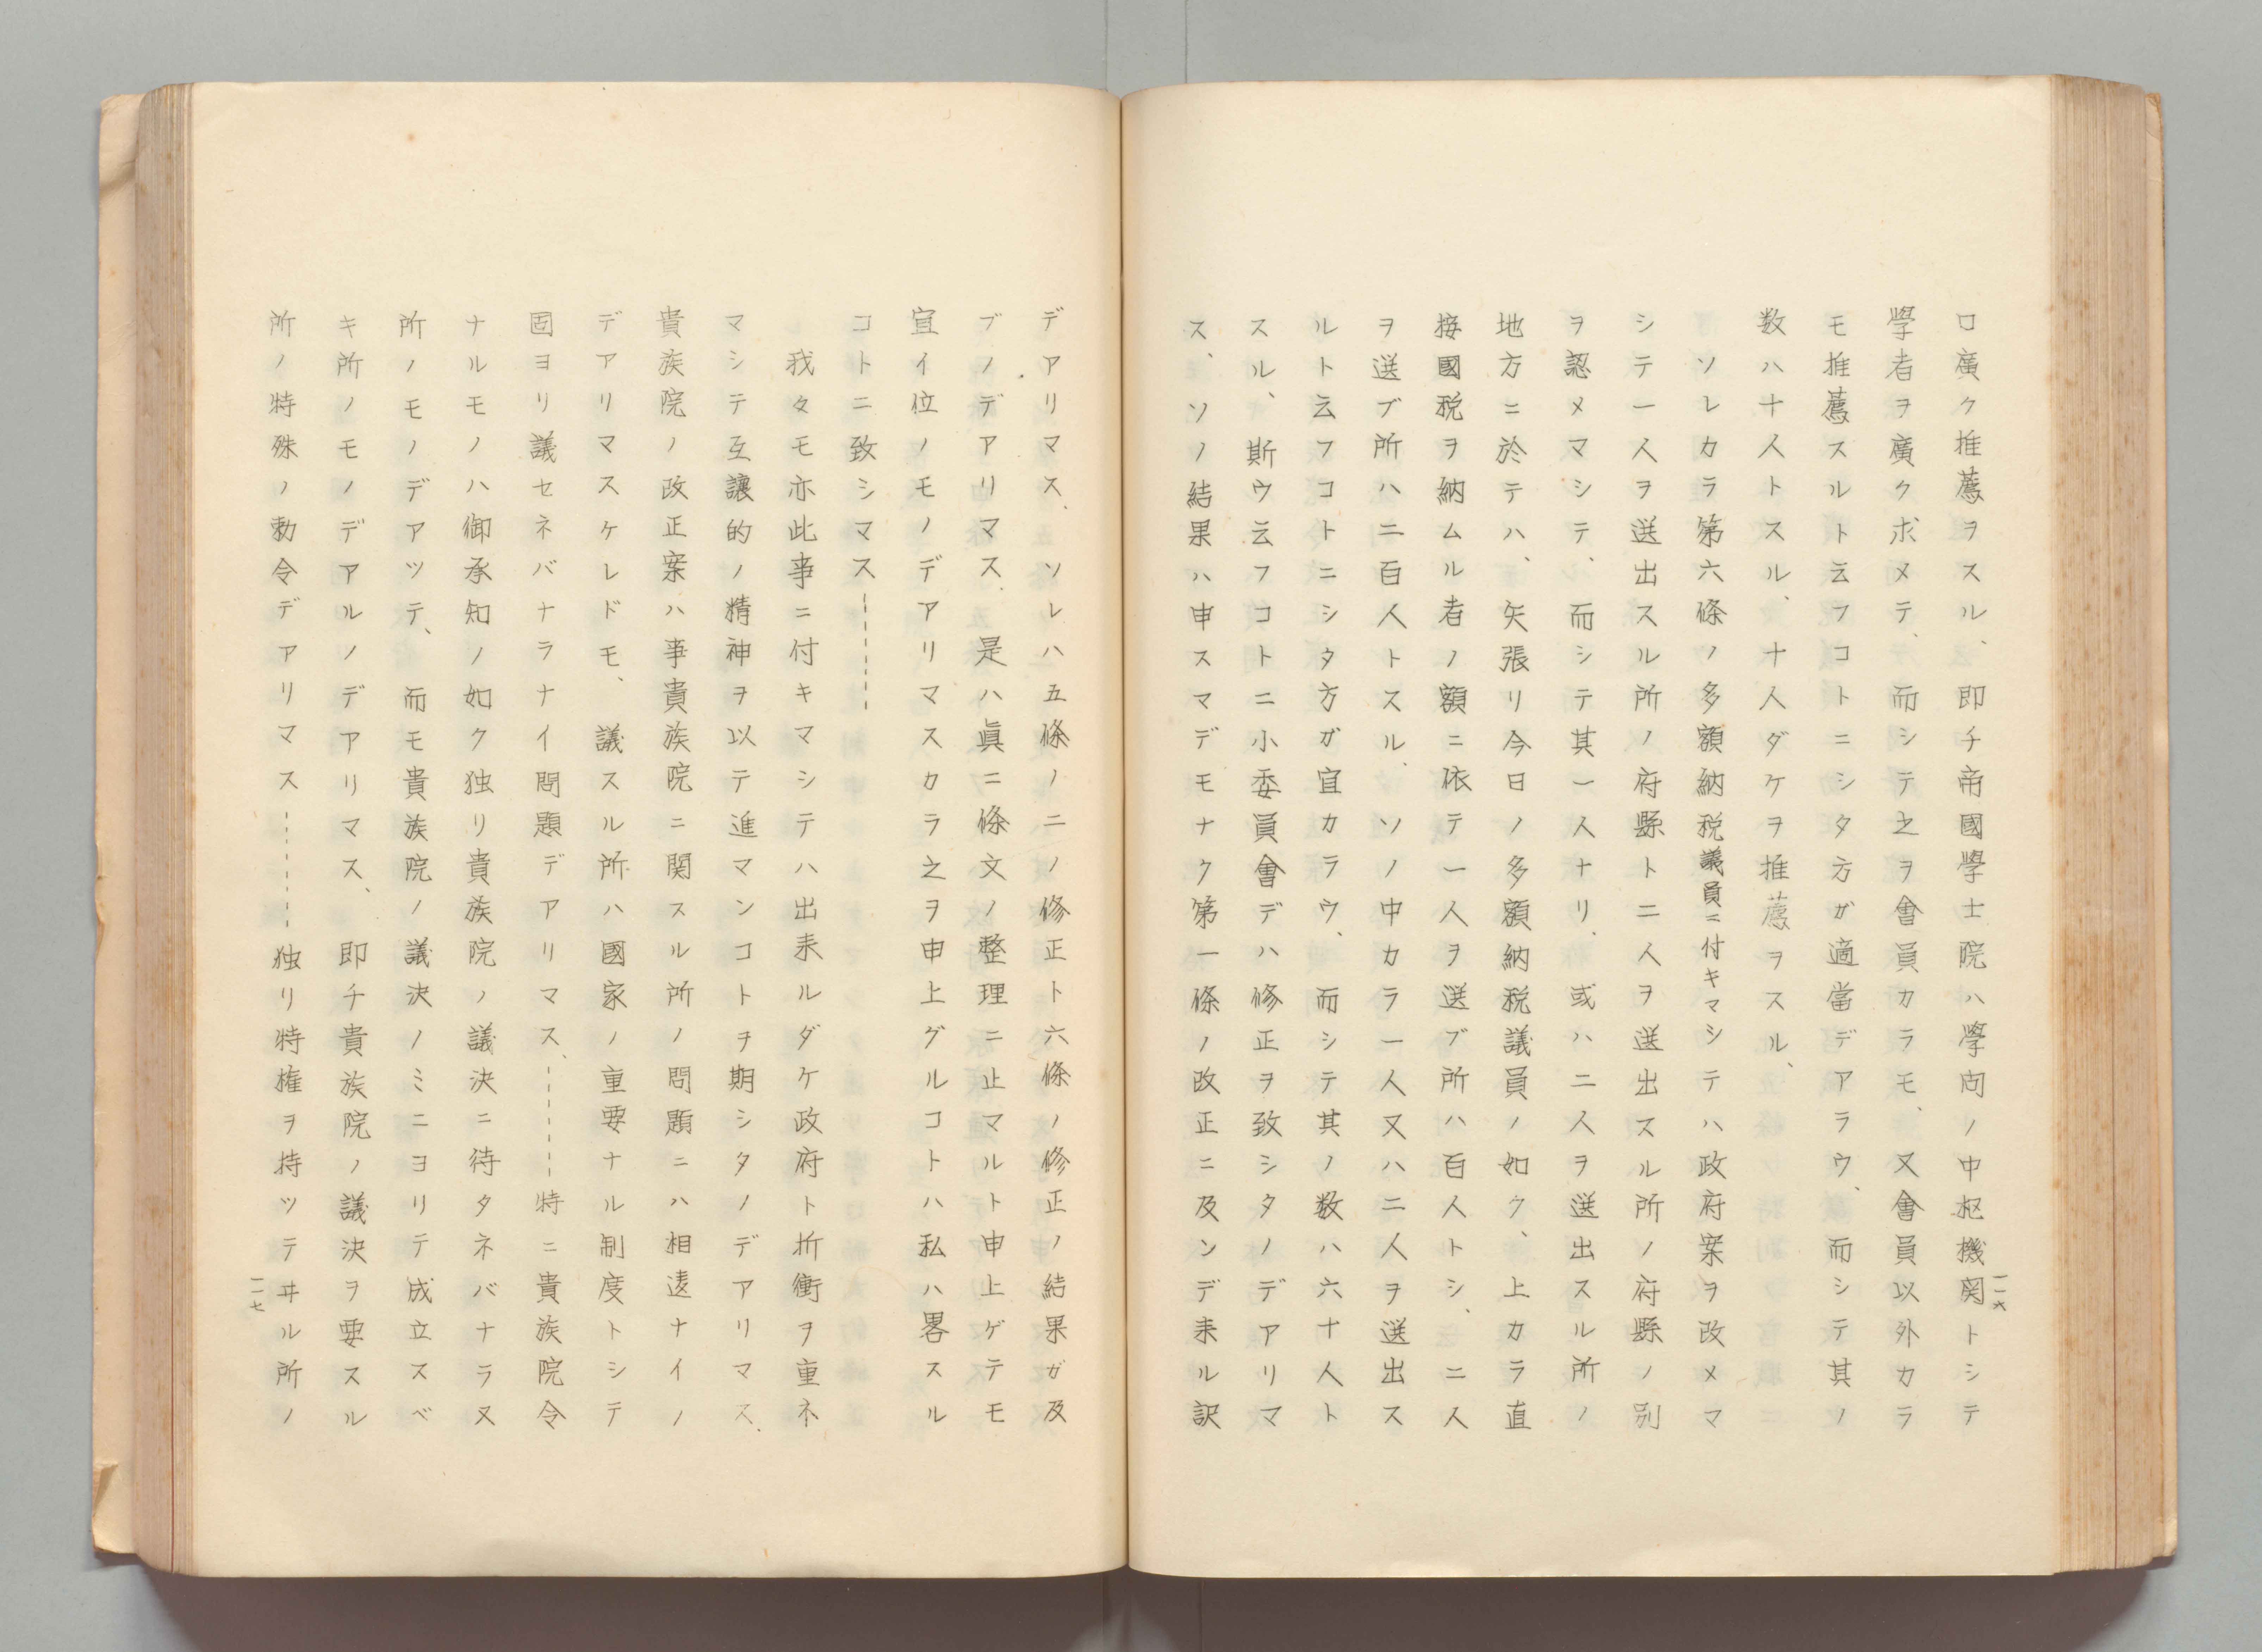 ロ廣ク推薦ヲスル、即チ帝國學士院ハ學问ノ中枢機関トシテ
學者ヲ廣ク求メテ、而シテ之ヲ會員カラモ、又會員以外カラ
モ推薦スルト云フコトニシタ方ガ適當デアラウ、而シテ其ノ
数ハ十人トスル、十人ダケヲ推薦ヲスル、
ソレカラ第六條ノ多額納税議員ニ付キマシテハ政府案ヲ改メマ
シテ一人ヲ選出スル所ノ府縣ト二人ヲ選出スル所ノ府縣ノ別
ヲ認メマシテ、而シテ其一人ナリ、或ハ二人ヲ選出スル所ノ
地方ニ於テハ、矢張リ今日ノ多額納税議員ノ如ク、上カラ直
接國税ヲ納ムル者ノ額ニ依テ一人ヲ選ブ所ハ百人トシ、二人
ヲ選ブ所ハ二百人トスル、ソノ中カラ一人又ハ二人ヲ選出ス
ルト云フコトニシタ方ガ宜カラウ、而シテ其ノ数ハ六十人ト
スル、斯ウ云フコトニ小委員會デハ修正ヲ致シタノデアリマ
ス、ソノ結果ハ申スマデモナク第一條ノ改正ニ及ンデ来ル訳
一一六
デアリマス、ソレハ五條ノ二ノ修正ト六條ノ修正ノ結果ガ及
ブノデアリマス、是ハ眞ニ條文ノ整理ニ止マルト申上ゲテモ
宜イ位ノモノデアリマスカラ之ヲ申上グルコトハ私ハ畧スル
コトニ致シマス------
我々モ亦此事ニ付キマシテハ出来ルダケ政府ト折衝ヲ重ネ
マシテ互讓的ノ精神ヲ以テ進マンコトヲ期シタノデアリマス、
貴族院ノ改正案ハ事貴族院ニ関スル所ノ問題ニハ相違ナイノ
デアリマスケレドモ、議スル所ハ國家ノ重要ナル制度トシテ
固ヨリ議セネバナラナイ問題デアリマス、------特ニ貴族院令
ナルモノハ御承知ノ如ク独リ貴族院ノ議決ニ待タネバナラヌ
所ノモノデアツテ、而モ貴族院ノ議決ノミニヨリテ成立スベ
キ所ノモノデアルノデアリマス、即チ貴族院ノ議決ヲ要スル
所ノ特殊ノ勅令デアリマス------独リ特権ヲ持ツテヰル所ノ
一一七